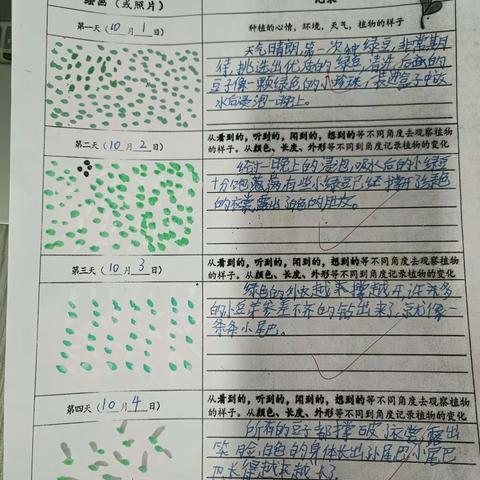 绘画（或照片）
记录
第一天（10月1日）
种植的心情，环境，天气，植物的样子
天气晴朗，第一次种绿豆，非常期
待，挑选出优质的绿豆，清洗后的
豆子像一颗颗绿色的小珍珠，装进盒子中放
水后浸泡一晚上。
第二天（10月2日）
从看到的，听到的，闻到的，想到的等不同角度去观察植物
的样子。从颜色、长度、外形等不同到角度记录植物的变化
经过一晚上的浸泡，吸水后的小绿豆
十分饱满
有些小绿豆已经撑开了绿色
的衣裳露出了白色的肚皮。
第三天（10月3日）
从看到的，听到的，闻到的，想到的等不同角度去观察植物
的样子。从颜色、长度、外形等不同到角度记录植物的变化
绿色的外衣越来撑越开，许许多多
的小豆芽参差不齐的钻出来了，就像一
条条小尾巴。
第四天（10月4日）
从看到的，听到的，闻到的，想到的等不同角度去观察植物
的样子。从颜色、长度、外形等不同到角度记录植物的变化
所有的豆子都撑破了衣裳露出
笑脸，白色的身体长出小尾巴小尾巴
也长得越来越大了。